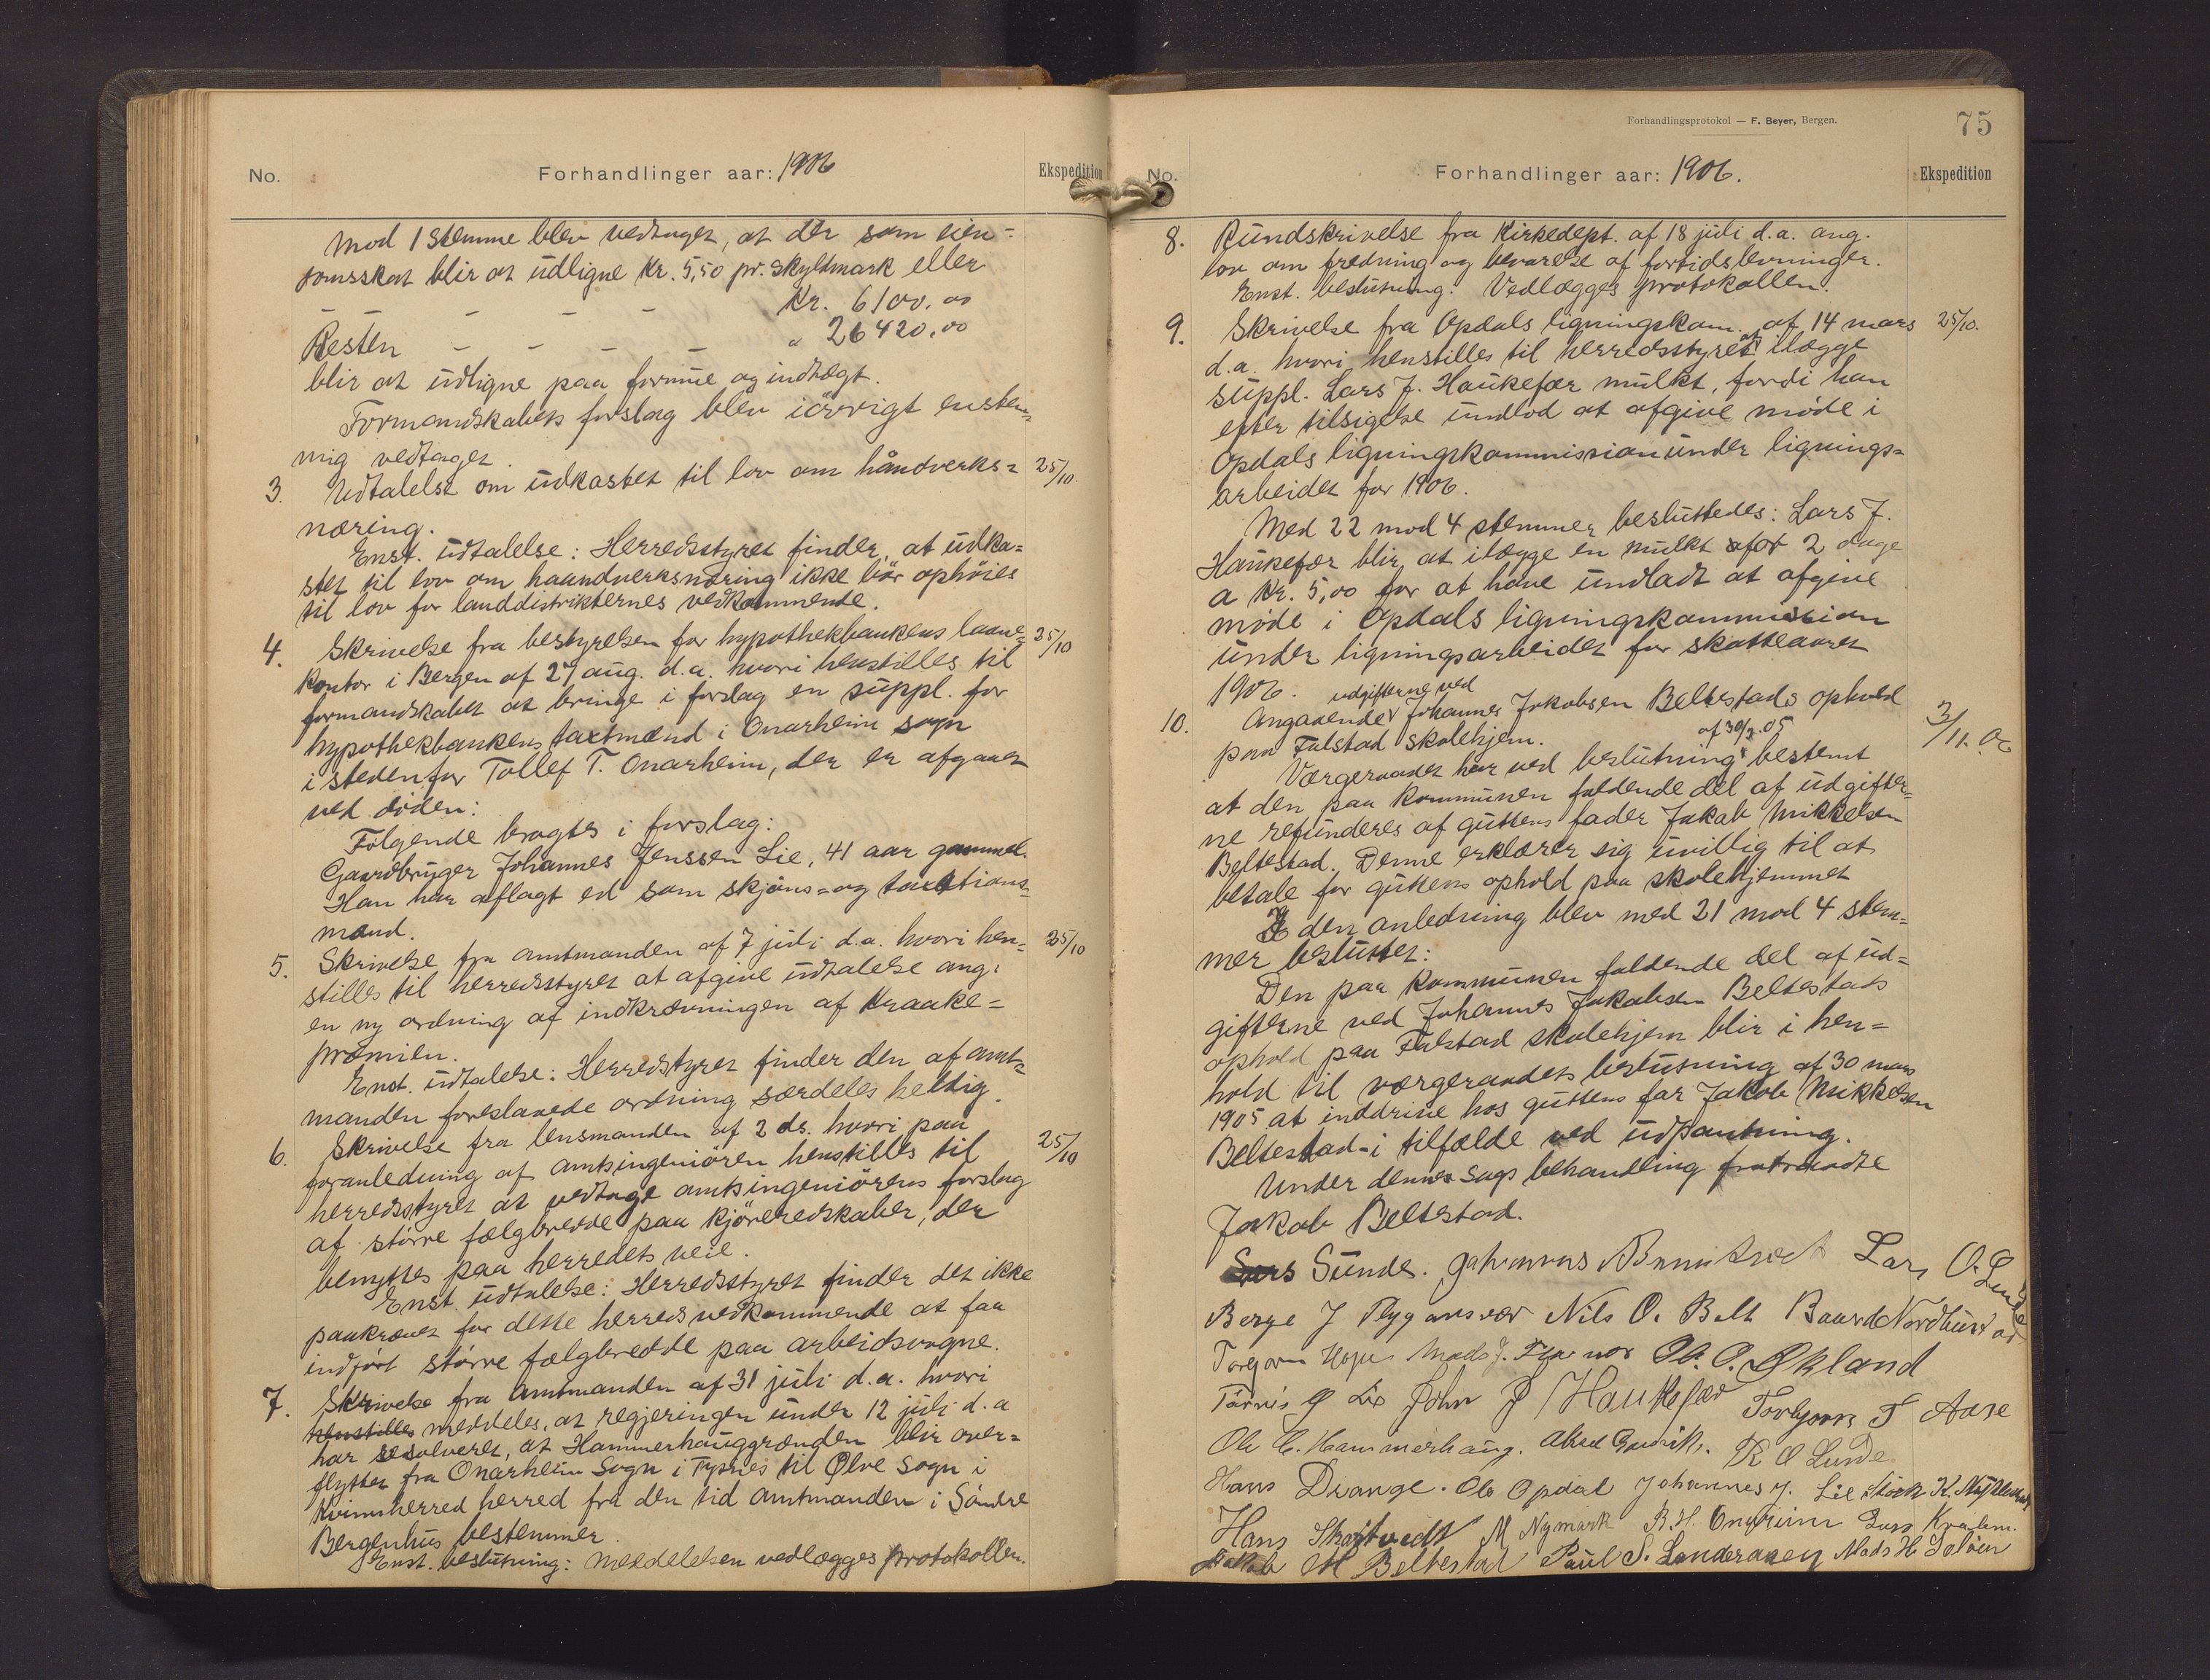 No.
Forhandlinger aar: 1906
Ekspedition
mod 1 stemme blev vedtaget, at der som eien-
domsskat blir at udligne kr. 5,50 pr. skyldmark eller
- - - - - kr. 6100.00
Resten - - - - " 26420.00
blir at udligne paa formue og indtægt.
Formandskabets forslag blev iövrigt enstem-
mig vedtaget.
3. Udtalelse om udkastet til lov om håndverks- 25/10.
næring.
Enst. udtalelse: Herredsstyret finder, at udka-
stet til lov om haandverksnæring ikke bör ophöies
til lov for landdistrikternes vedkommende.
4. Skrivelse fra bestyrelsen for hypothekbankens laane- 25/10
kontor i Bergen af 29 aug. d.a. hvori henstilles til
formandskabet at bringe i forslag en suppl. for
hypothekbankens taxtmænd i Onarheim sogn
istedenfor Tollef T. Onarheim, der er afgaaet
ved döden:
Fölgende bragtes i forslag:
Gaardbruger Johannes Jenssen Lie, 41 aar gammel.
Han har aflagt ed som skjöns- og taxtions-
mand.
5. Skrivelse fra amtmanden af 7 juli d.a. hvori hen- 25/10
stilles til herredsstyret at afgive udtalelse ang.
en ny ordning af indkrævningen af Kraake-
præmien.
Enst. udtalelse: Herredstyret finder den af amt-
manden foreslaaede ordning særdeles heldig.
6. Skrivelse fra lensmanden af 2 ds. hvori paa 25/10
foranledning af amtsingeniören henstilles til
herredsstyret at vedtage amtsingeniörens forslag
af större fælgbredde paa kjöreredskaber, der
benyttes paa herredets veie.
Enst. udtalelse: Herredsstyret finder det ikke
paakrævet for dette herreds vedkommende at faa
indført större fælgbredde paa arbeidsvogne.
7. Skrivelse fra amtmanden af 31 juli d.a. hvori
henstilles meddeles, at regjeringen under 12 juli d.a
har resolveret, at Hammerhauggrænden blir over-
flyttet fra Onarheim Sogn i Tysnes til Ølve sogn i
Kvinnherred herred fra den tid amtmanden i Söndre
Bergenhus bestemmer.
Enst. beslutning: Meddelelsen vedlægges protokollen.
Forhandlingsprotokol — F. Beyer, Bergen.
75
No.
Forhandlinger aar: 1906.
Ekspedition
8. Rundskrivelse fra Kirkedept. af 18 juli d.a. ang.
lov om fredning og bevarelse af fortidslevninger.
Enst. beslutning: Vedlægges protokollen.
9. Skrivelse fra Opdals ligningskom. af 14 mars 25/10.
d.a. hvori henstilles til herredsstyret at ilægge
suppl. Lars J. Haukefær mulkt, fordi han
efter tilsigelse undlod at afgive møde i
Opdals ligningskommission under lignings-
arbeidet for 1906.
Med 22 mod 4 stemmer besluttedes: Lars J.
Haukefær blir at ilægge en mulkt for 2 dage
a kr. 5,00 for at have undladt at afgive
møde i Opdals ligningskommission
under ligningsarbeidet for skatteaaret
1906.
udgifterne ved
10. Angaaende Johannes Jakobsen Beltestads ophold 3/11.06
paa Falstad skolehjem.
af 30/3.05
Værgeraadet har ved beslutning bestemt
at den paa kommunen faldende del af udgifter-
ne refunderes af guttens fader Jakob Mikkelsen
Beltestad. Denne erklærer sig uvillig til at
betale for guttens ophold paa skolehjemmet
I den anledning blev med 21 mod 4 stem-
mer besluttet:
Den paa kommunen faldende del af ud-
gifterne ved Johannes Jakobsen Beltestads
ophold paa Falstad skolehjem blir i hen-
hold til værgeraadets beslutning af 30 mars
1905 at inddrive hos guttens far Jakob Mikkelsen
Beltestad - i tilfælde ved udpantning.
Under dennes sags behandling fratraadte
Jakob Beltestad.
Lars Sunde. Johannes Lars O. Lunde
Børge J Flygansvær Nils O. Belt Baard Nordhus
Torgeir Hope Mads J. O. O. Økland
Tørris G Lie John J Haukefær Torbjørn T Aase
Ole C. Hammerhaug. K O Lunde
Hans Drange. Ole Opdal Johannes J. Lie
Hans M Nymark B. H. Onarheim Lars
Jakob M Beltestad Paul S. Mads H